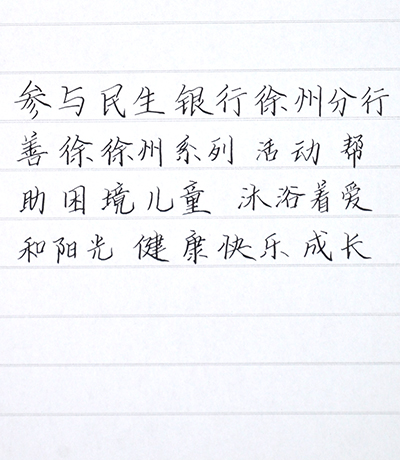 参与民生银行徐州分行
善徐徐州系列 活动 帮
助困境儿童 沐浴着爱
和阳光 健康快乐成长